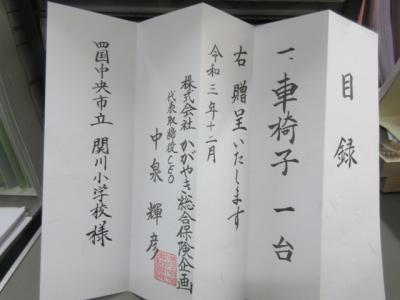 目録
一、車椅子 一台
右 贈呈いたします
令和三年十二月
株式会社 かがやき総合保険企画
代表取締役CEO
中泉 輝彦
四国中央市立 関川小学校 様